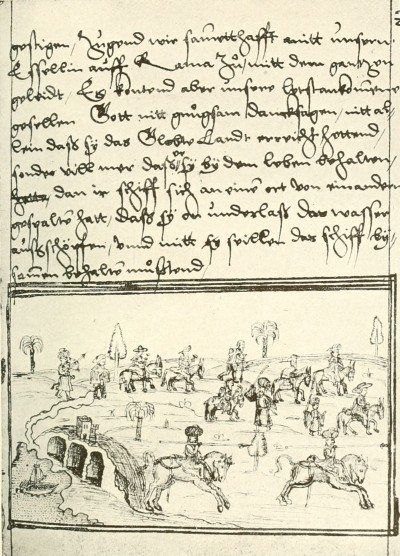 gestigen, Zugend wie samenthafft mitt unsern
Essellin auff Rama Zu, mitt dem gantzen
geleidt, Es kontend aber unsere
gesellen Gott nitt gnugsam dancksagen, nitt al-
lein dass sy das Globte Landt erreicht hettend
sonder vill mer dass er sy by dem leben behalten
dan ir schiff sich an einem ort von einander
gespalten hatt, dass sy on underlass das wasser
aussschöpffen, unnd mitt seillen das schiff by-
samen behalten musstend